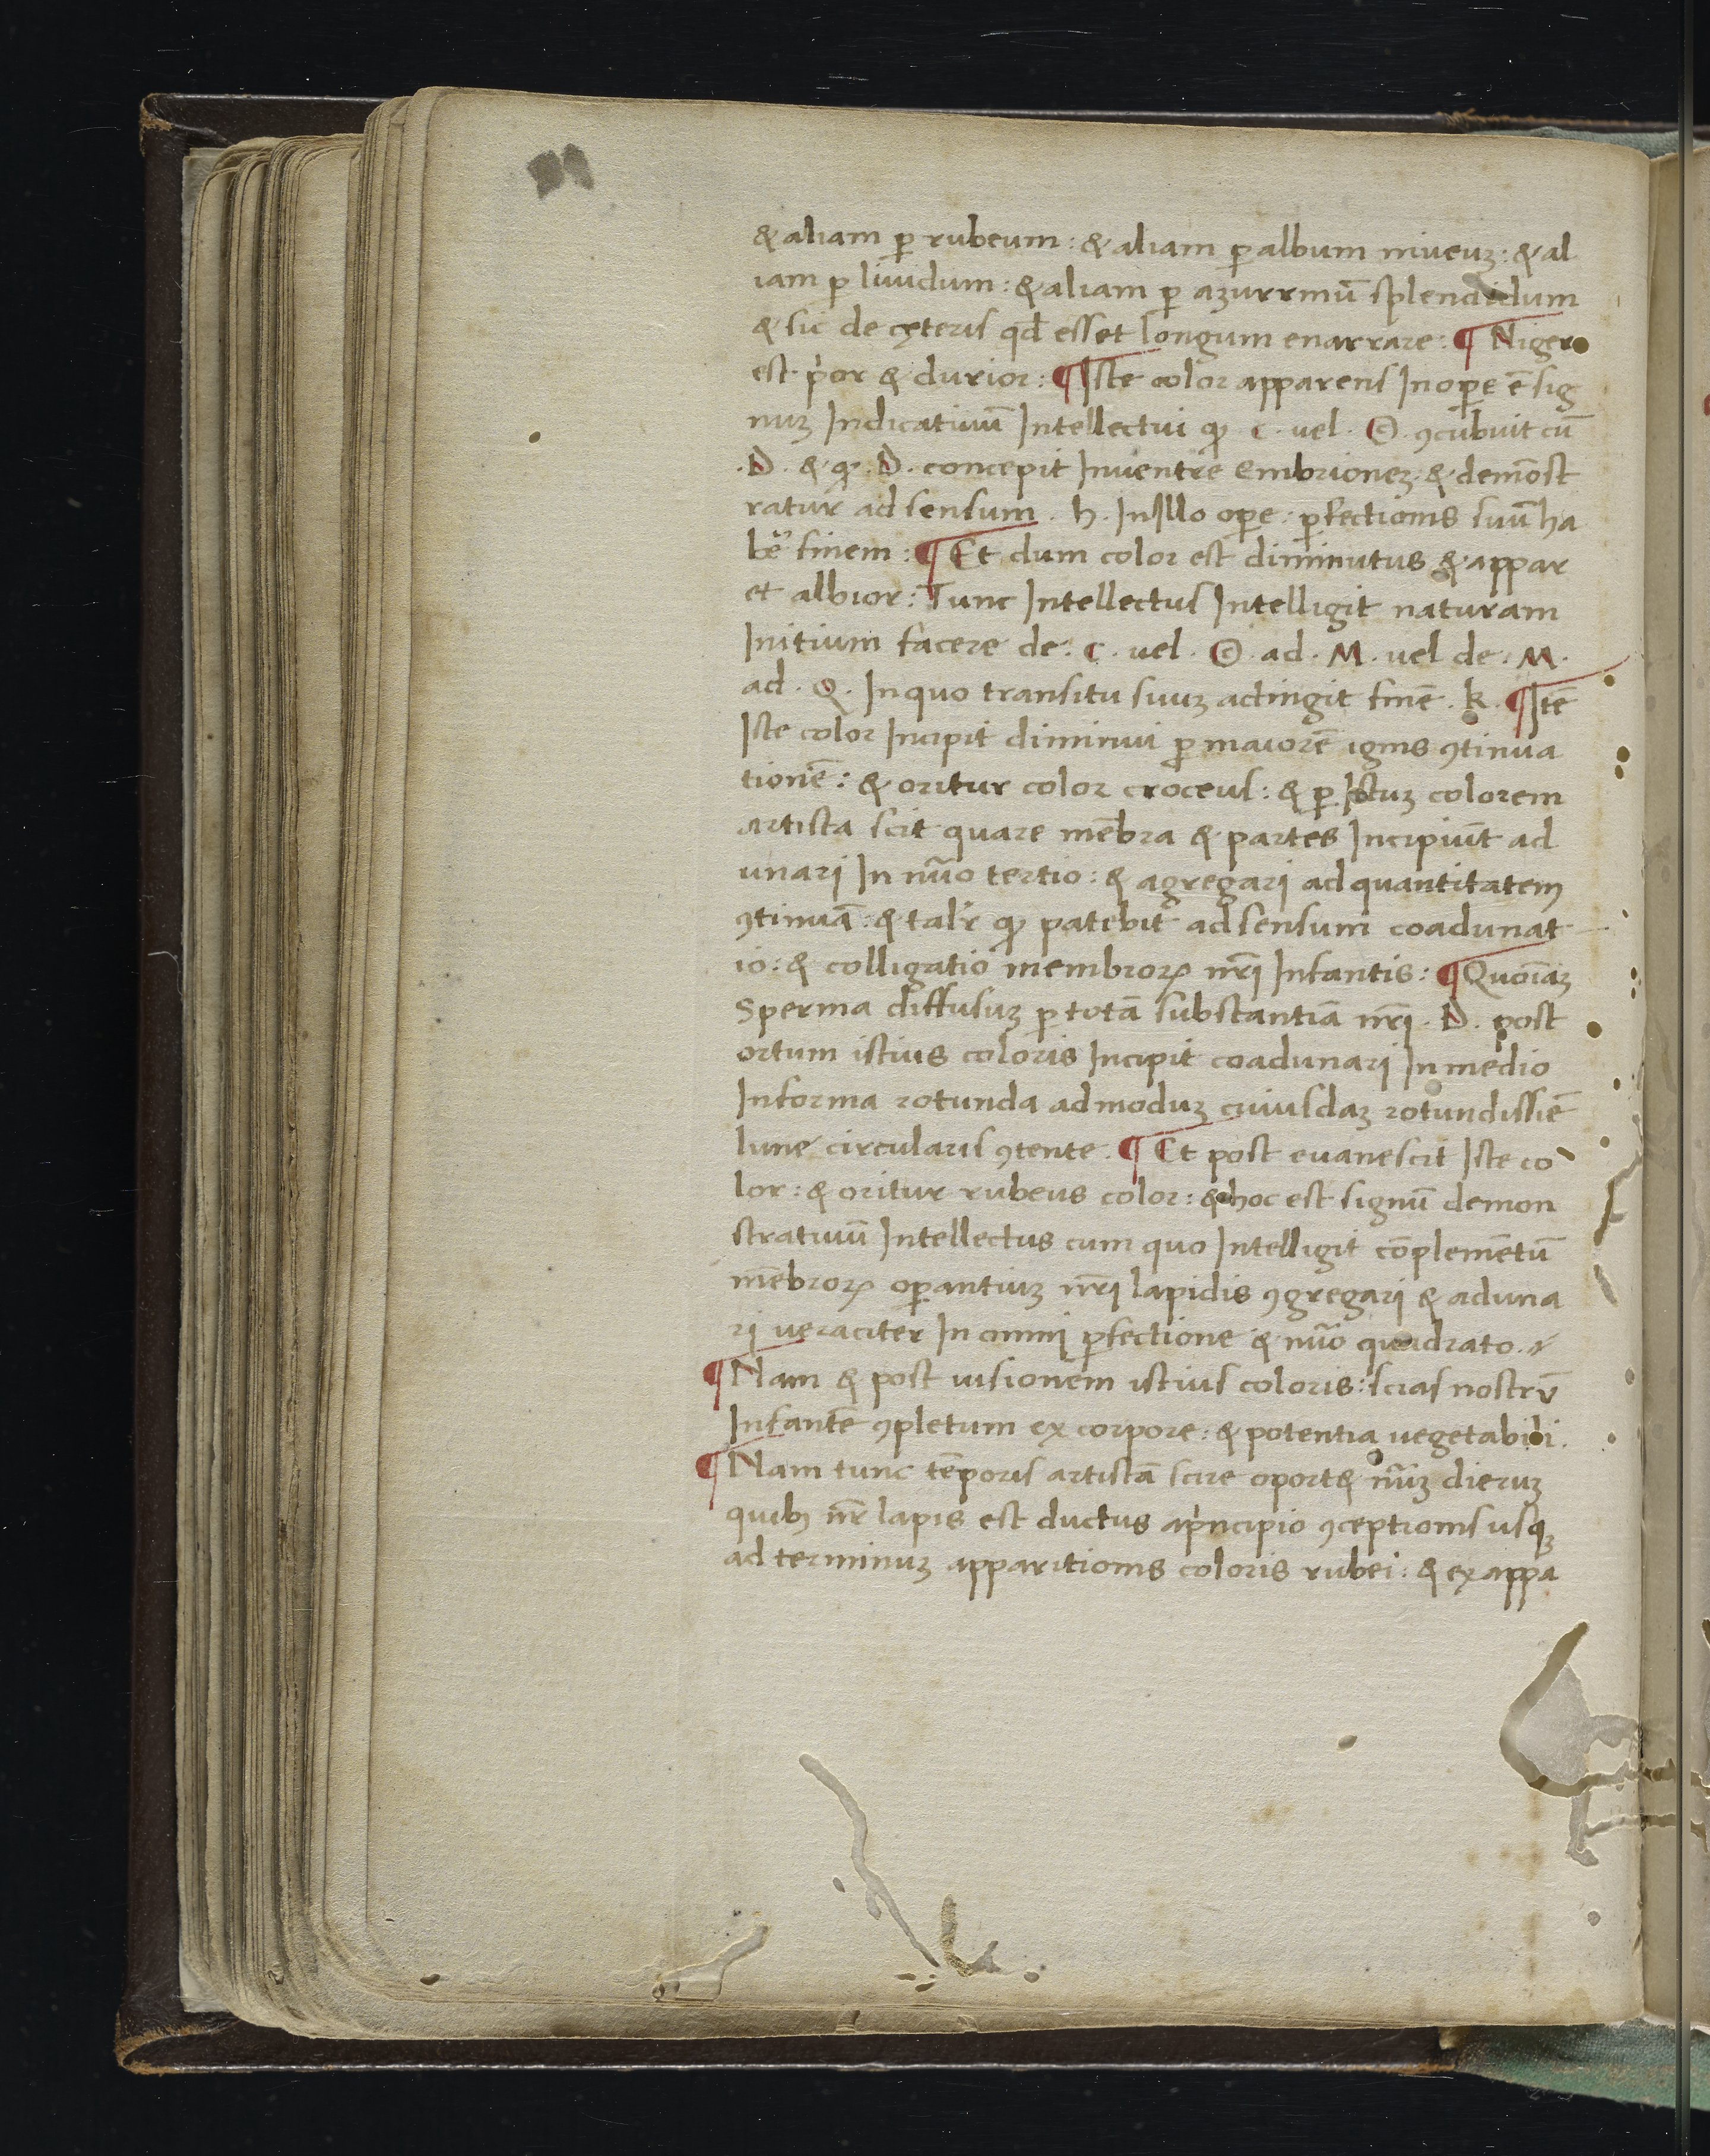 & aliam ꝑ rubeum: & aliam ꝑ album niueuʒ: & al
iam ꝑ liuidum: & aliam ꝑ azurrinū splendidum
& sic de cęteris qđ esset longum enarrare: ¶ Niger
est p̍or & durior: ¶ Iste color apparens In oꝑe ē sig
nuʒ Indicatiuū Intellectui ꝙ .C. uel .Ꙩ. ꝯcūbuit cū
.D. & ꝙ .D. concepit Inuentre Embrioneʒ. & demōst
ratur ad sensum .h. In Illo oꝑe: ꝑfectionis suū ha
bē finem: ¶ Et dum color est diminutus & appar
et albior: Tunc Intellectus Intelligit naturam
Initium facere de .C. uel .Ꙩ. ad .M. uel de .M.
ad .Q. In quo transitu suuʒ actingit finē .k. ¶ Itē
Iste color Incipit diminui ꝑ maiorē ignis ꝯtinua
tionē: & oritur color croceus: & ꝑ Istuʒ colorem
artista scit quare mēbra & partes Incipiūt ad
unari In nūo tertio: & agregari ad quantitatem
ꝯtinuā: & tal'r ꝙ patebit ad sensum coadunat
io: & colligatio membroꝝ nr̄i Infantis: ¶ Quoīaʒ
Sperma diffusuʒ ꝑ totā substantiā nr̄i .D. post
ortum istius coloris Incipit coadunari In medio
In forma rotunda ad moduʒ cuiusdaʒ rotundissiē
lune circularis ꝯtente. ¶ Et post euanescit Iste co
lor: & oritur rubeus color: & hoc est signū demon
stratiuū Intellectus cum quo Intelligit cōplemētū
mēbroꝝ oꝑantiuʒ nr̄i lapidis ꝯgregari & aduna
ri ueraciter In omni ꝑfectione & nūo quadrato.
¶ Nam & post uisionem istius coloris: scias nostrū
Infantē ꝯpletum ex corpore: & potentia uegetabili.
¶ Nam tunc tēporis artistā scire oport& nūʒ dieruʒ
quibꝫ nr̄ lapis est ductus a p̍ncipio ꝯceptionis usqꝫ
ad terminuʒ apparitionis coloris rubei: & ex appa